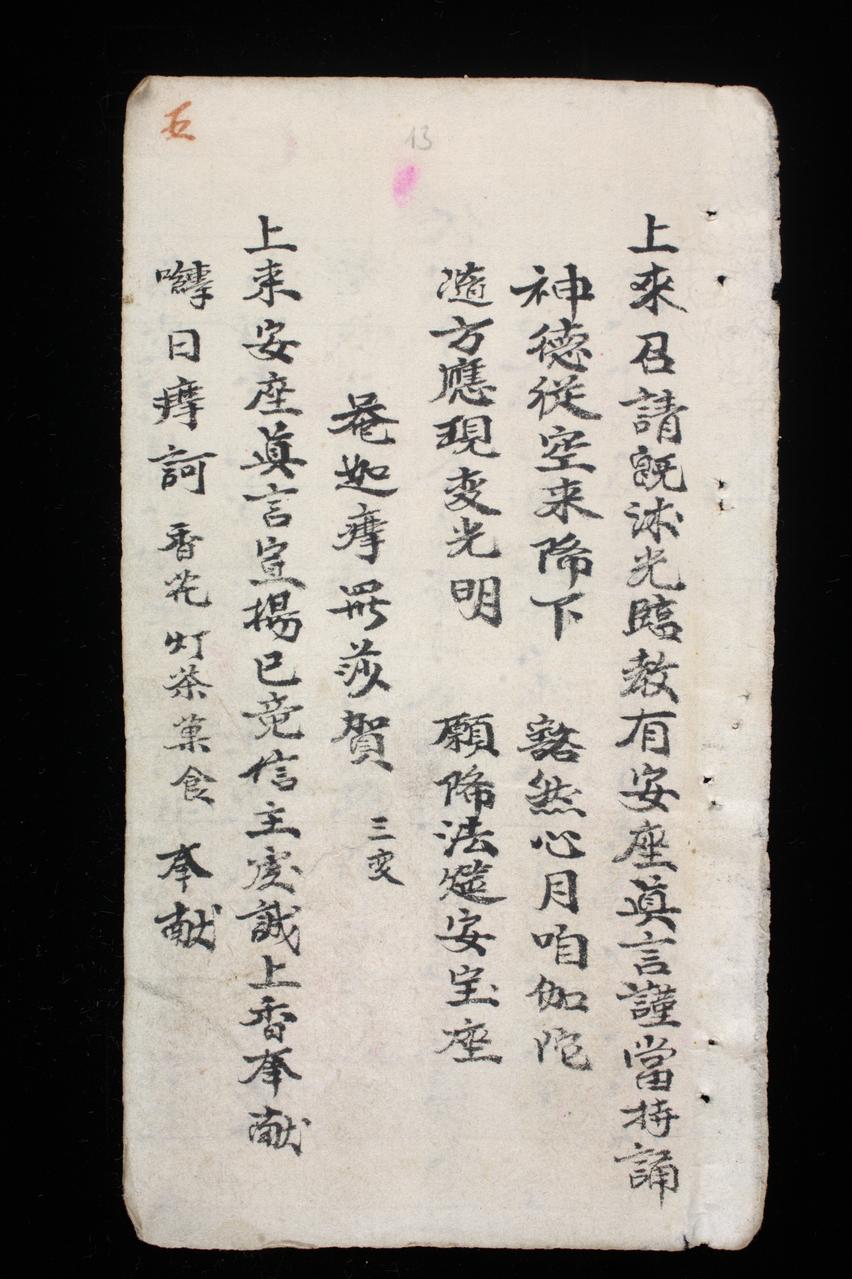 13
上來召請既沐光臨教有安座眞言謹當持誦
神德從空来降下 豁然心月咱伽陀
随方應現变光明 願降法筵安宝座
菴迦摩㘸莎賀 三変
上来安座眞言宣揚已竟信主虔誠上香奉献
嚩日摩訶 香花灯茶菓食 奉献